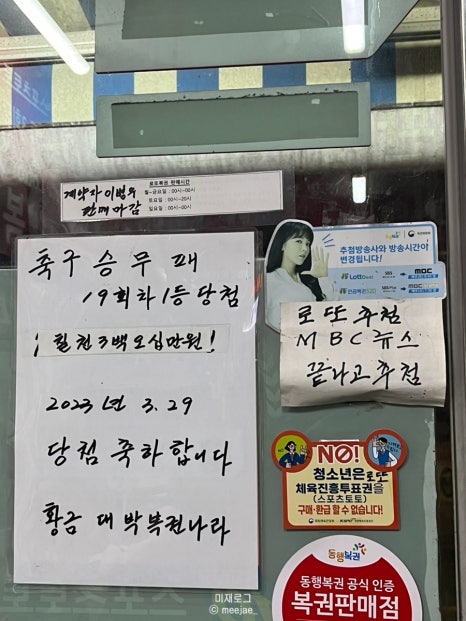 로또복권 판매시간
계약자 이병우
판매마감
월~금요일 : 00시~00시
토요일 : 00시~20시
일요일 : 00시~00시
축구 승무패
19회차 1등 당첨
¡ 칠천3백오십만원!
2023년 3.29
당첨 축하합니다
황금대박복권나라
동행복권
추첨방송사와 방송시간이
변경됩니다!
Lotto
SBS
MBC
연금복권520
SBS Plus
MBC
로또 추첨
MBC 뉴스
끝나고 추첨
NO!
청소년은 로또
체육진흥투표권을
(스포츠토토)
구매·환급 할 수 없습니다!
동행복권
동행복권 공식 인증
복권판매점
미재로그
© meejae_